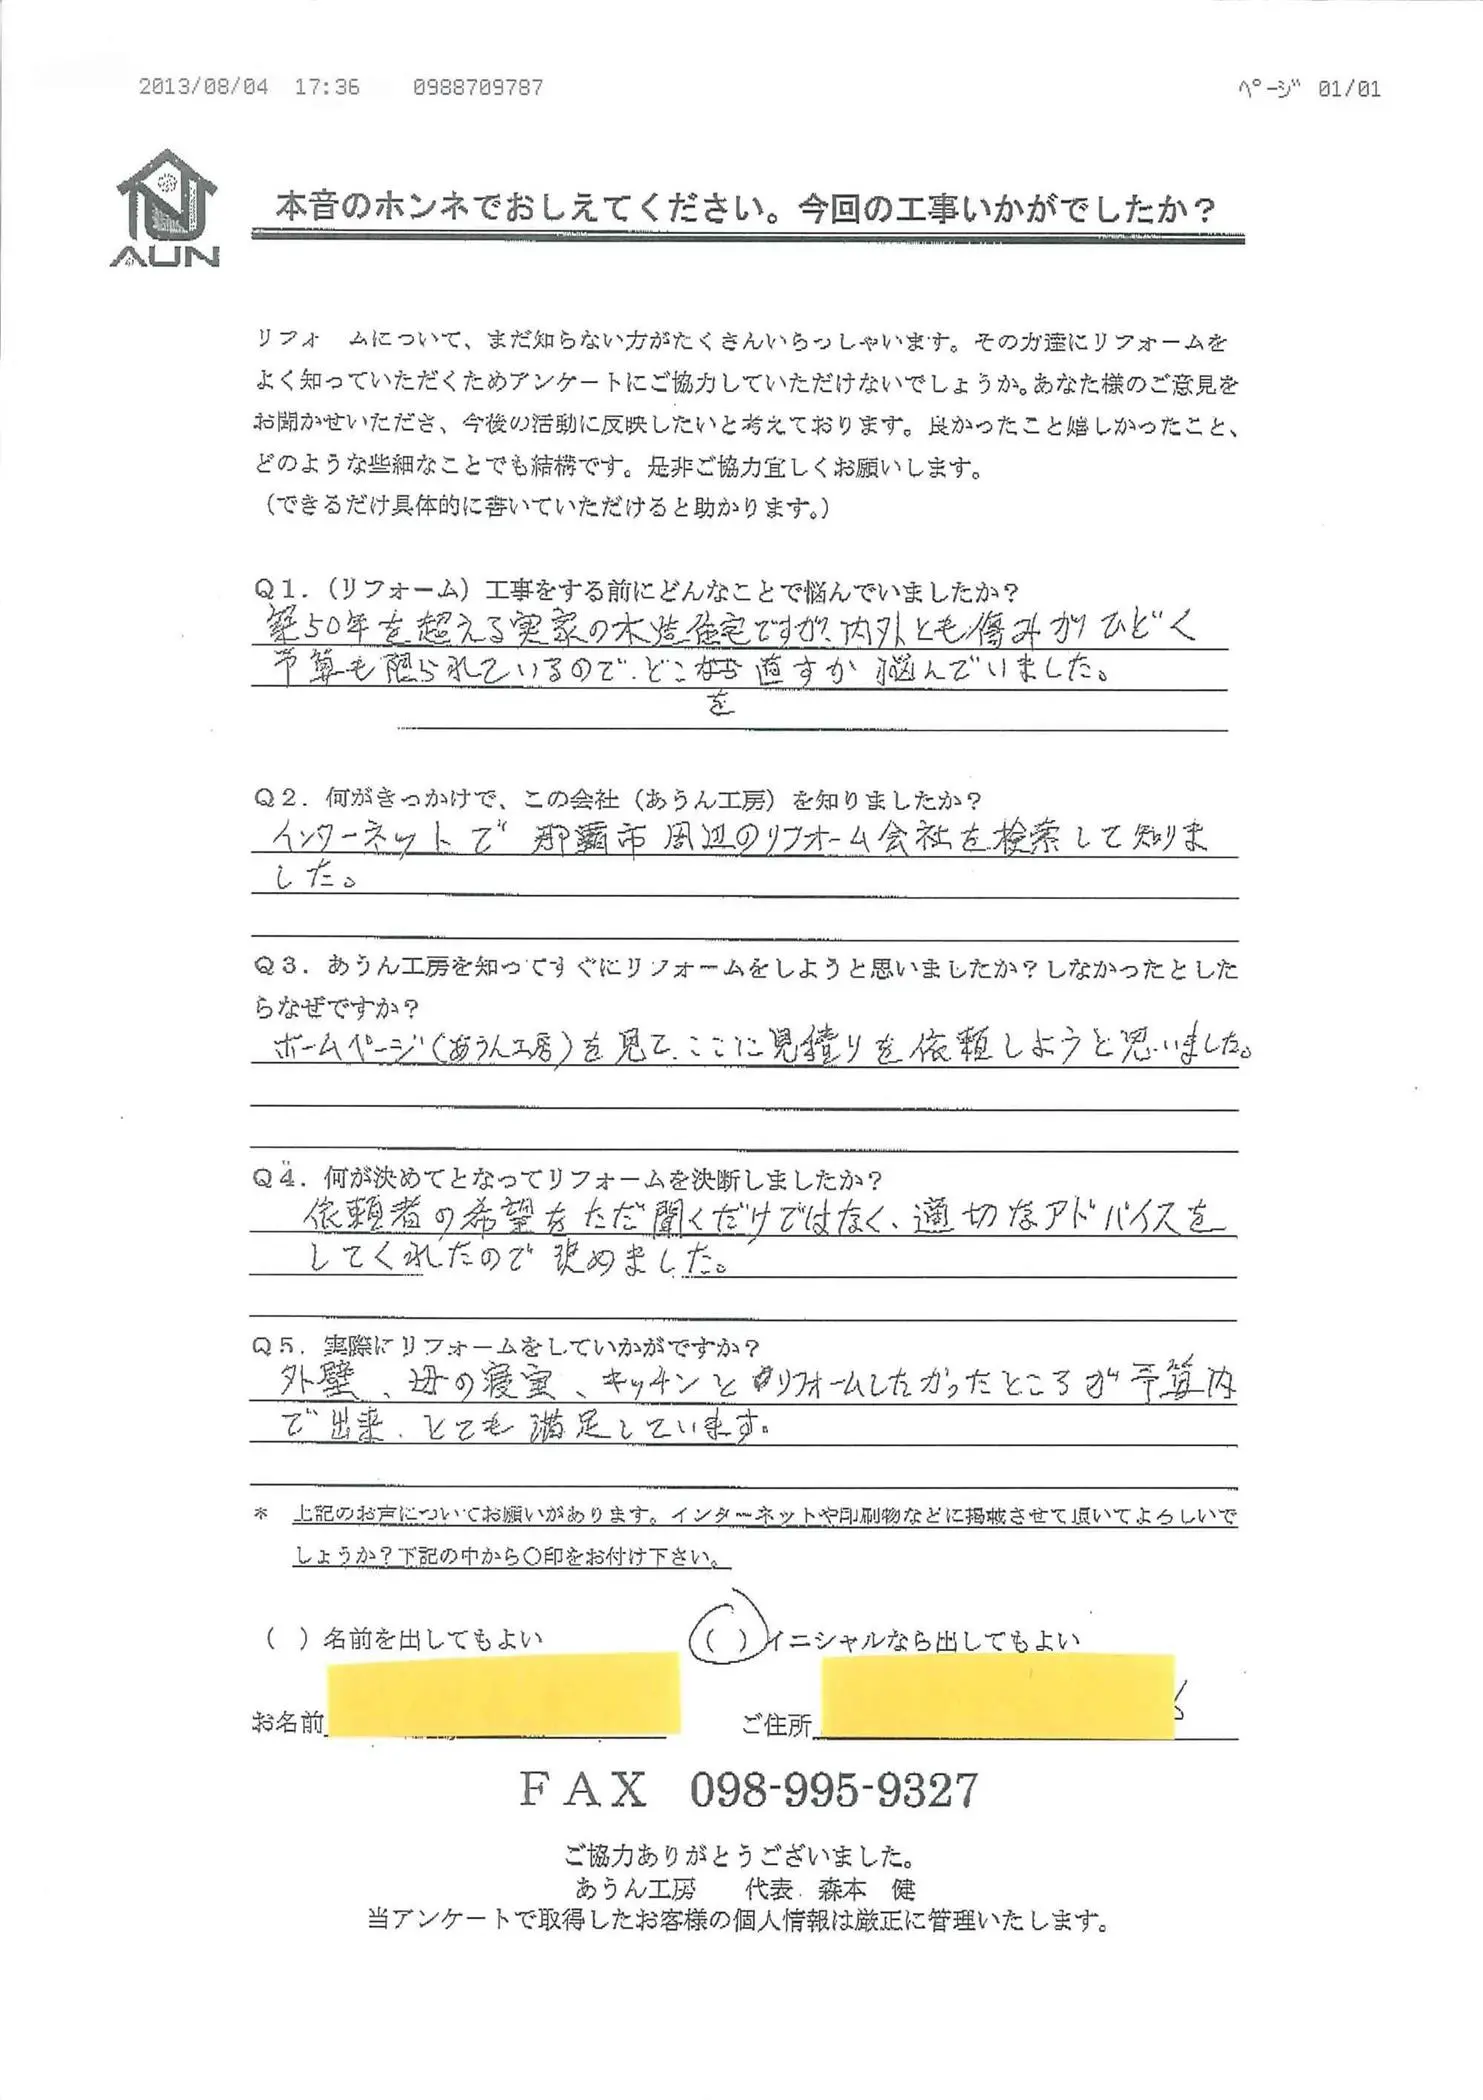 2013/08/04 17:36 0988709787 ページ 01/01
AUN
本音のホンネでおしえてください。今回の工事いかがでしたか？
リフォームについて、まだ知らない方がたくさんいらっしゃいます。その方達にリフォームを
よく知っていただくためアンケートにご協力していただけないでしょうか。あなた様のご意見を
お聞かせいただき、今後の活動に反映したいと考えております。良かったこと嬉しかったこと、
どのような些細なことでも結構です。是非ご協力宜しくお願いします。
（できるだけ具体的に書いていただけると助かります。）
Q1．（リフォーム）工事をする前にどんなことで悩んでいましたか？
築50年を超える実家の木造住宅ですが、内外とも傷みがひどく
予算も限られているので、どこを直すか悩んでいました。
Q2．何がきっかけで、この会社（あうん工房）を知りましたか？
インターネットで那覇市周辺のリフォーム会社を検索して知りま
した。
Q3．あうん工房を知ってすぐにリフォームをしようと思いましたか？しなかったとした
らなぜですか？
ホームページ（あうん工房）を見て、ここに見積りを依頼しようと思いました。
Q4．何が決めてとなってリフォームを決断しましたか？
依頼者の希望をただ聞くだけではなく、適切なアドバイスを
してくれたので決めました。
Q5．実際にリフォームをしていかがですか？
外壁、母の寝室、キッチンとリフォームしたかったところが予算内
で出来、とても満足しています。
＊ 上記のお声についてお願いがあります。インターネットや印刷物などに掲載させて頂いてよろしいで
しょうか？下記の中から○印をお付け下さい。
（ ）名前を出してもよい （ ）イニシャルなら出してもよい
お名前 ご住所
FAX 098-995-9327
ご協力ありがとうございました。
あうん工房 代表 森本 健
当アンケートで取得したお客様の個人情報は厳正に管理いたします。